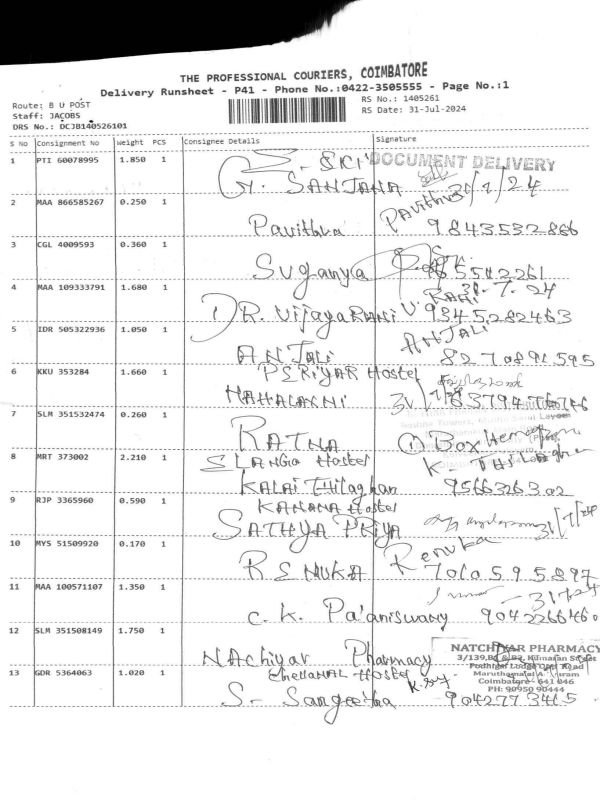 THE PROFESSIONAL COURIERS, COIMBATORE
Delivery Runsheet - P41 - Phone No.:0422-3505555 - Page No.:1
Route: B U POST
RS No.: 1405261
Staff: JACOBS
RS Date: 31-Jul-2024
DRS No.: DCJB140526101
S No Consignment No Weight PCS Consignee Details Signature
1 PTI 60078995 1.850 1
DOCUMENT DELIVERY
G. SANJANA 31/7/24
2 MAA 866585267 0.250 1 Pavithra
Pavithra 9843532886
3 CGL 4009593 0.360 1
Suganya
4 MAA 109333791 1.680 1 31.7.24
DR. Vijaya Rani V. 9345282463
5 IDR 505322936 1.050 1 ANJALI
ANJALI 8270891595
6 KKU 353284 1.660 1 PERIYAR Hostel
MAHALAKMI
7 SLM 351532474 0.260 1
RATNA Box
8 MRT 373002 2.210 1 SLANGO Hostel
KALAI Thilaghan 9566326302
9 RJP 3365960 0.590 1 KANANA Hostel
SATHYA PRIYA 31/7/24
10 MYS 51509920 0.170 1 Renuka
RENUKA 7010595897
11 MAA 100571107 1.350 1
C. K. Pa'aniswamy 9042266460
12 SLM 351508149 1.750 1
NATCHIYAR PHARMACY
3/139, Kumaran Street
Podhigai Lodge Opp Road
Nachiyar Pharmacy
Coimbatore - 641 046
PH: 90950 90444
13 GDR 5364063 1.020 1 Hostel
S. Sangeetha 9042773465